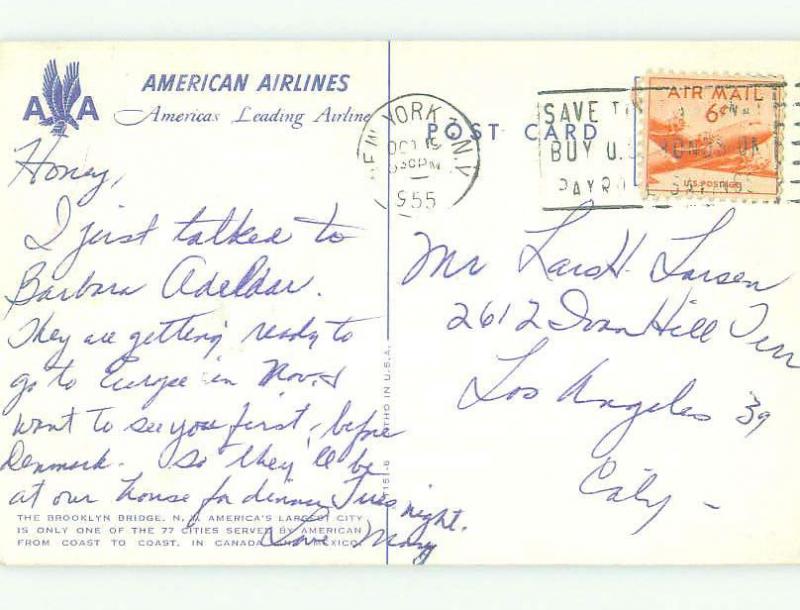 AMERICAN AIRLINES
America's Leading Airline
A A
Honey,
I just talked to
Barbara Adeldar.
They are getting ready to
go to Europe in Nov. &
want to see you first, before
Denmark. So they'll be
at our house for dinner Tues night.
Love Mary
THE BROOKLYN BRIDGE, N. Y. AMERICA'S LARGEST CITY
IS ONLY ONE OF THE 77 CITIES SERVED BY AMERICAN
FROM COAST TO COAST, IN CANADA AND MEXICO.
LITHO IN U.S.A.
POST CARD
NEW YORK, N.Y.
OCT 15
530PM
1955
SAVE
BUY U.S. BONDS ON
PAYROLL SAVINGS
AIR MAIL
6¢
U.S. POSTAGE
Mr Lars H. Larsen
2612 Ivan Hill Terr
Los Angeles 39
Caly -